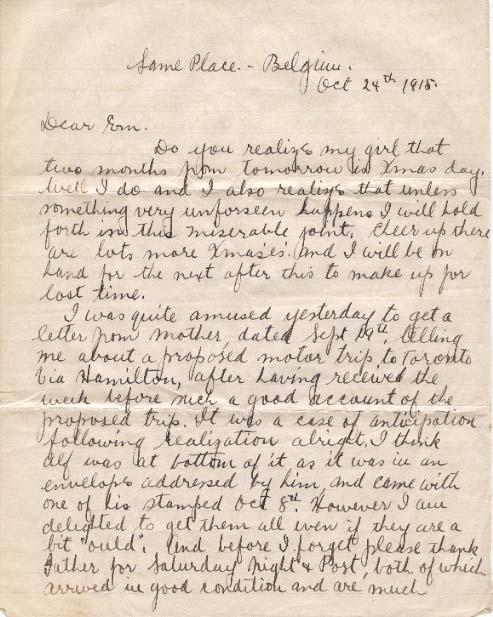 Same Place. - Belgium.
Oct 24th 1915.
Dear Em.
Do you realize my girl that
two months from tomorrow is Xmas day.
Well I do and I also realize that unless
something very unforseen happens I will hold
forth in this miserable joint. Cheer up there
are lots more Xmas'es. and I will be on
hand for the next after this to make up for
lost time.
I was quite amused yesterday to get a
letter from Mother, dated Sept 19th. telling
me about a proposed motor trip to Toronto
via Hamilton, after having received the
week before such a good account of the
proposed trip. It was a case of anticipation
following realization alright. I think
Alf was at bottom of it as it was in an
envelope addressed by him, and came with
one of his stamped Oct 8th. However I am
delighted to get them all even if they are a
bit "ould". And before I forget please thank
Father for Saturday Night & Post, both of which
arrived in good condition and are much